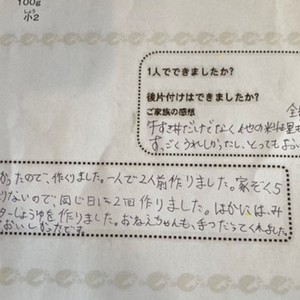 100g
小2
しょう
1人でできましたか?
後片付けはできましたか?
ご家族の感想
牛すき丼だけでなく他の料理
す。ごくうれしかったし、とっても
かったので、作りました。一人で2人前作りました。家ぞく
りないので、同じ日に2回作りました。
ターしょうゆを作りました。おねえちゃんも、手つだってくれました。
おいしかったです。